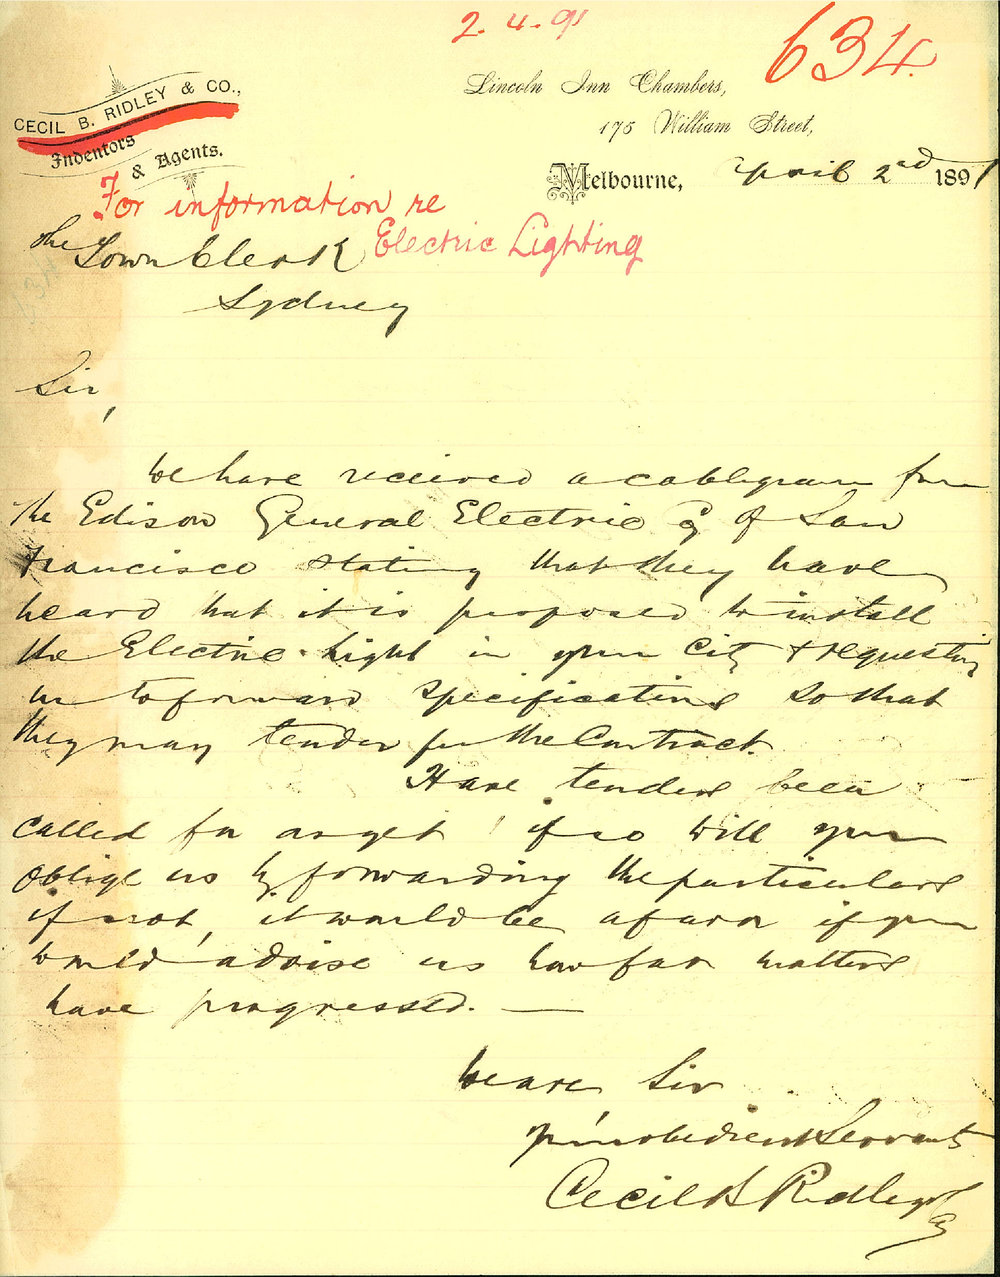 2.4.91
634.
CECIL B. RIDLEY & CO.,
Indentors
& Agents.
Lincoln Inn Chambers,
175 William Street,
Melbourne, April 2nd 1891
For information re
Electric Lighting
The Town Clerk
Sydney
Sir,
We have received a cablegram from
the Edison General Electric Co of San
Francisco stating that they have
heard that it is proposed to install
the Electric Light in your City & requesting
us to forward specifications so that
they may tender for the Contract.
Have tenders been
called for as yet if so will you
oblige us by forwarding the particulars
if not, it would be a favor if you
would advise us how far matters
have progressed. —
We are Sir
Your obedient Servants
Cecil B Ridley & Co